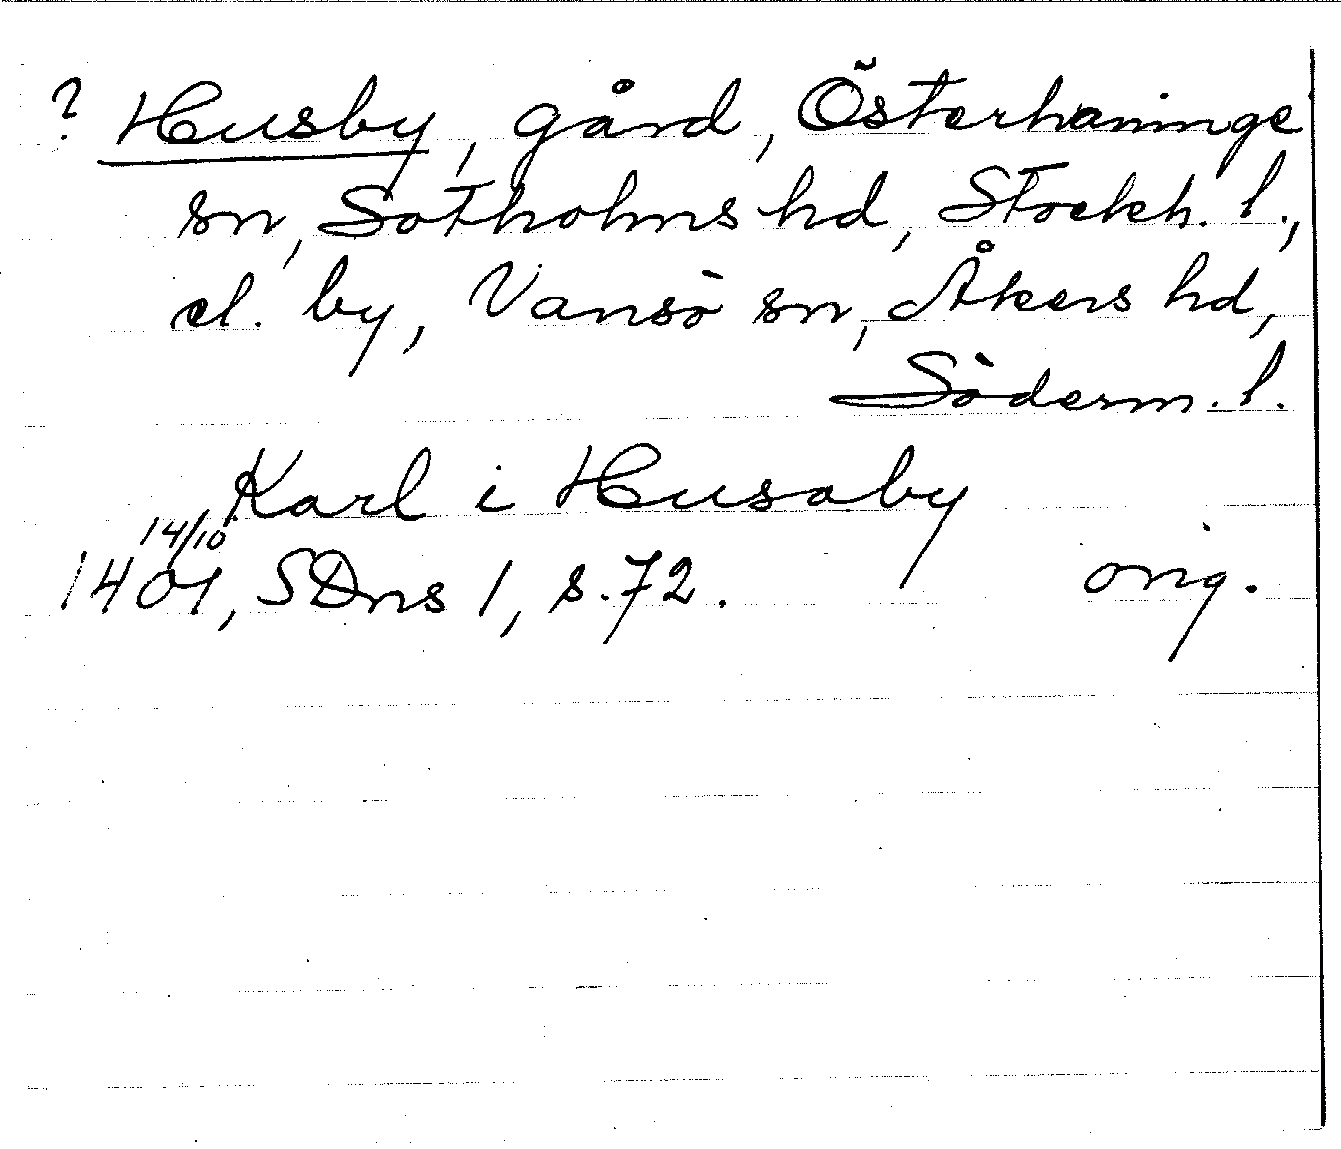 ? Husby, gård, Österhaninge
sn, Sotholms hd, Stockh. l.,
el. by, Vansö sn, Åkers hd,
Söderm. l.
Karl i Husaby
14/10
1401, SDns 1, s. 72. orig.